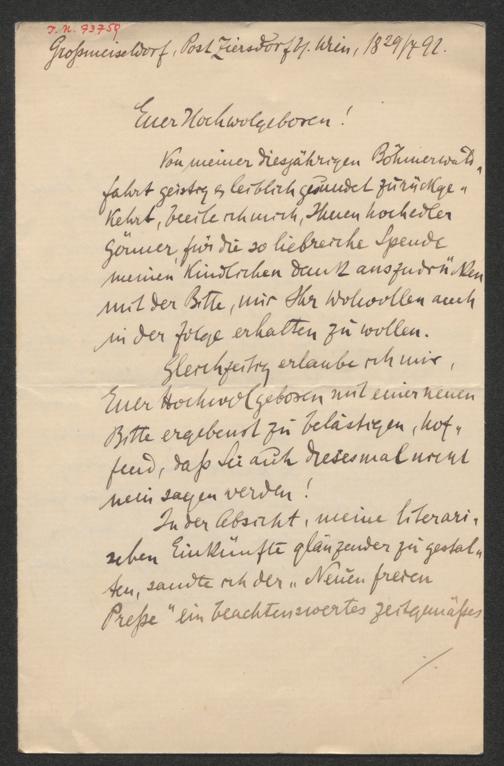 J. N. 93759
Großmeiseldorf, Post Ziersdorf b/ Wien, 18 29/7 92.
Euer Hochwolgeboren!
Von meiner diesjährigen Böhmerwald-
fahrt geistig & leiblich gesundet zurückge-
kehrt, beeile ich mich, Ihnen hochedler
Gönner, für die so liebreiche Spende
meinen kindlichen Dank auszudrücken
mit der Bitte, mir Ihr Wolwollen auch
in der folge erhalten zu wollen.
Gleichzeitig erlaube ich mir,
Euer Hochwolgeboren mit einer neuen
Bitte ergebenst zu belästigen, hof-
fend, daß Sie auch diesesmal nicht
nein sagen werden!
In der Absicht, meine literari-
schen Einkünfte glänzender zu gestal-
ten, sandte ich der „Neuen freien
Preße" ein beachtenswertes zeitgemäßes
./.